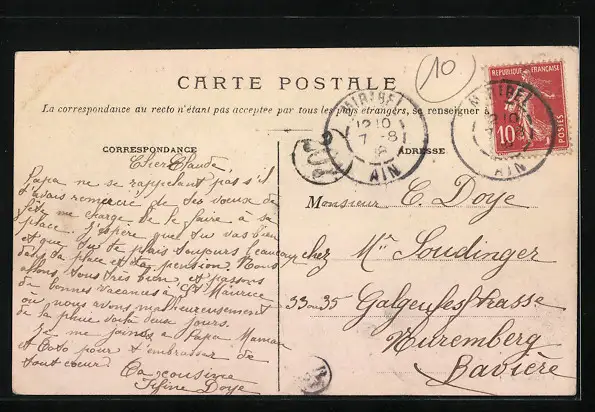 CARTE POSTALE
La correspondance au recto n'étant pas acceptée par tous les pays étrangers, se renseigner à
10
REPUBLIQUE FRANÇAISE
10
POSTES
MIRIBEL
12 10
7 -8
AIN
MIRIBEL
AIN
CORRESPONDANCE
ADRESSE
Cher Claude,
Papa ne se rappelant pas s'il
t'avais remercié de tes voeux de
fête me charge de le faire à sa
place. J'espère que tu vas bien
et que tu te plais toujours beaucoup
dans ta place et ta pension. Nous
allons tous très bien et passons
de bonnes vacances à St Maurice
où nous avons malheureusement
de la pluie voilà deux jours.
Je me joins à Papa Maman
et pour t'embrasser de
tout coeur.
Ta cousine
Fifine Doye
Monsieur C. Doye
chez Mr Soudinger
33 ou 35 Galgenhofstrasse
Nuremberg
Bavière